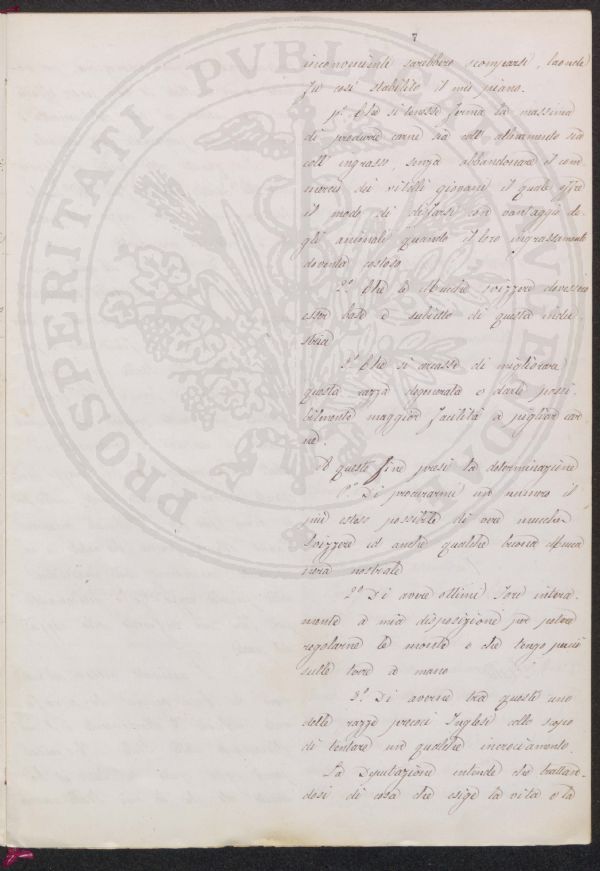 7
inconvenienti sarebbero scomparsi, laonde
fu così stabilito il mio piano.
1º Che si tenesse ferma la massima
di produrre carne sia coll' allevamento sia
coll' ingrasso senza abbandonare il com
mercio dei vitelli giovani il quale offre
il modo di disfarsi con vantaggio de
gli animali quando il loro ingrassamento
doventa costoso
2º Che le Mucche svizzere dovessero
esser base e subietto di questa indu
stria
3º Che si cercasse di migliorare
questa razza degenerata e darle possi
bilmente maggior facilità a pigliar car
ne.
A questo fine presi la determinazione
1º Di procurarmi un numero il
più esteso possibile di vere mucche
Svizzere ed anche qualche buona Mucca
nostrale
2º Di avere ottimi Tori intera
mente a mia disposizione per potere
regolarne le monte e che tengo
sulle terre a mano
3º Di averne tra questi uno
delle razze precoci Inglesi collo scopo
di tentare un qualche incrociamento.
La Deputazione intende che trattan
dosi di cosa che esige la vita e la
PROSPERITATI PVBLICAE